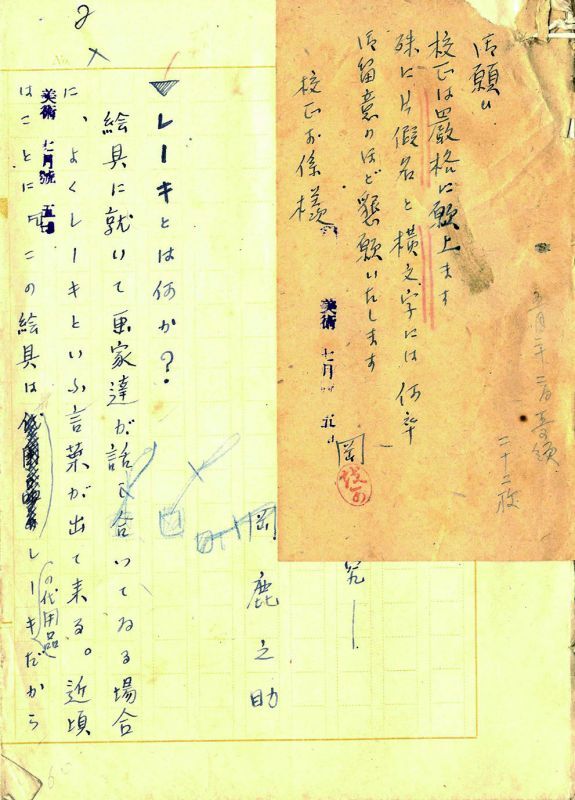 御願ひ
校正は厳格に願上ます
殊に片假名と横文字には何卒
御留意のほど懇願いたします
岡
校正お係様
美術 七月號
二十二枚
究ー
岡鹿之助
レーキとは何か?
絵具に就いて画家達が話し合いてゐる場合
に、よくレーキといふ言葉が出て来る。近頃
の代用品
はことにこの絵具はレーキだから
美術 七月號
2